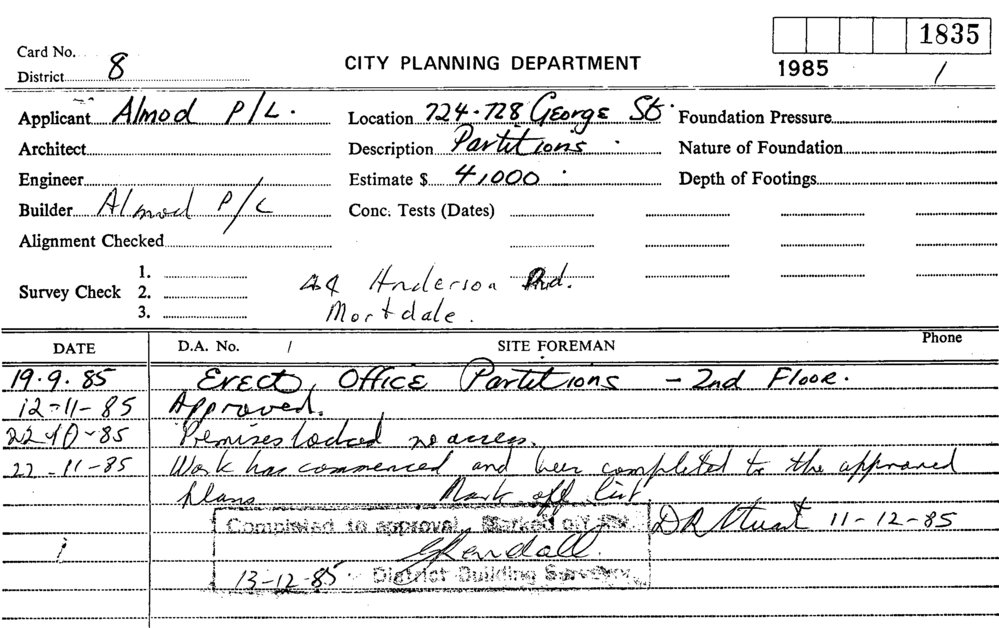 1835
Card No.
District 8
CITY PLANNING DEPARTMENT
1985 /
Applicant Almod P/L.
Location 724-728 George St.
Foundation Pressure
Architect
Description Partitions.
Nature of Foundation
Engineer
Estimate $ 41,000.
Depth of Footings
Builder Almod P/L
Conc. Tests (Dates)
Alignment Checked
Survey Check 1.
2.
3.
44 Anderson Rd.
Mortdale.
DATE D.A. No. / SITE FOREMAN Phone
19.9.85 Erect, Office Partitions - 2nd Floor.
12-11-85 Approved.
22-10-85 Premises locked no access.
22-11-85 Work has commenced and been completed to the approved
plans Mark off list
DR Stuart 11-12-85
Completed to approval. Marked off
13-12-85 District Building Surveyor